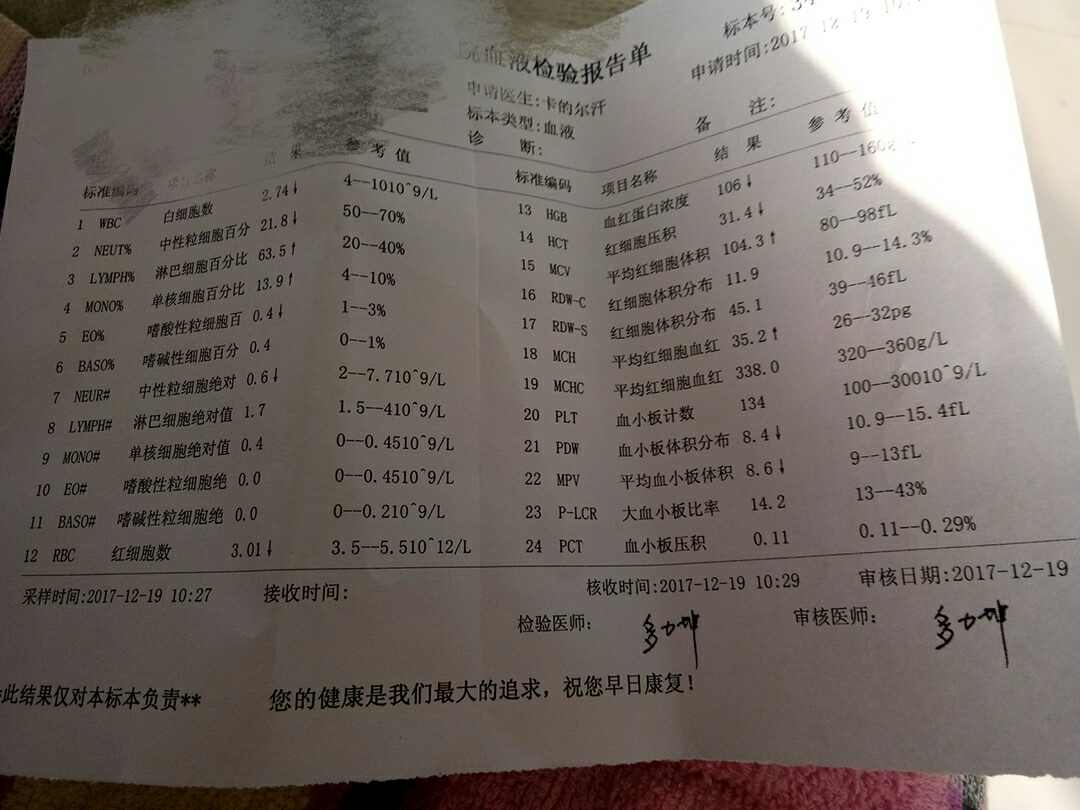 血液检验报告单
标本号:
申请时间:2017-12-19
申请医生:卡的尔汗
标本类型:血液
备 注:
诊 断:
标准编码 项目名称 结 果 参 考 值 标准编码 项目名称 结 果 参 考 值
1 WBC 白细胞数 2.74↓ 4--1010^9/L 13 HGB 血红蛋白浓度 106↓ 110--160
2 NEUT% 中性粒细胞百分 21.8↓ 50--70% 14 HCT 红细胞压积 31.4↓ 34--52%
3 LYMPH% 淋巴细胞百分比 63.5↑ 20--40% 15 MCV 平均红细胞体积 104.3↑ 80--98fL
4 MONO% 单核细胞百分比 13.9↑ 4--10% 16 RDW-C 红细胞体积分布 11.9 10.9--14.3%
5 EO% 嗜酸性粒细胞百 0.4↓ 1--3% 17 RDW-S 红细胞体积分布 45.1 39--46fL
6 BASO% 嗜碱性粒细胞百分 0.4 0--1% 18 MCH 平均红细胞血红 35.2↑ 26--32pg
7 NEUR# 中性粒细胞绝对 0.6↓ 2--7.710^9/L 19 MCHC 平均红细胞血红 338.0 320--360g/L
8 LYMPH# 淋巴细胞绝对值 1.7 1.5--410^9/L 20 PLT 血小板计数 134 100--30010^9/L
9 MONO# 单核细胞绝对值 0.4 0--0.4510^9/L 21 PDW 血小板体积分布 8.4↓ 10.9--15.4fL
10 EO# 嗜酸性粒细胞绝 0.0 0--0.4510^9/L 22 MPV 平均血小板体积 8.6↓ 9--13fL
11 BASO# 嗜碱性粒细胞绝 0.0 0--0.210^9/L 23 P-LCR 大血小板比率 14.2 13--43%
12 RBC 红细胞数 3.01↓ 3.5--5.510^12/L 24 PCT 血小板压积 0.11 0.11--0.29%
采样时间:2017-12-19 10:27 接收时间: 核收时间:2017-12-19 10:29 审核日期:2017-12-19
检验医师: 审核医师:
此结果仅对本标本负责** 您的健康是我们最大的追求，祝您早日康复!